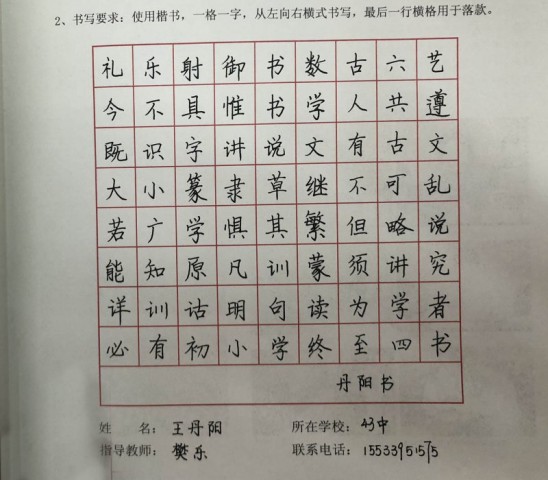 2、书写要求：使用楷书，一格一字，从左向右横式书写，最后一行横格用于落款。
礼乐射御书数古六艺
今不具惟书学人共遵
既识字讲说文有古文
大小篆隶草继不可乱
若广学惧其繁但略说
能知原凡训蒙须讲究
详训诂明句读为学者
必有初小学终至四书
丹阳书
姓　名：王丹阳　所在学校：43中
指导教师：樊乐　联系电话：15533951575